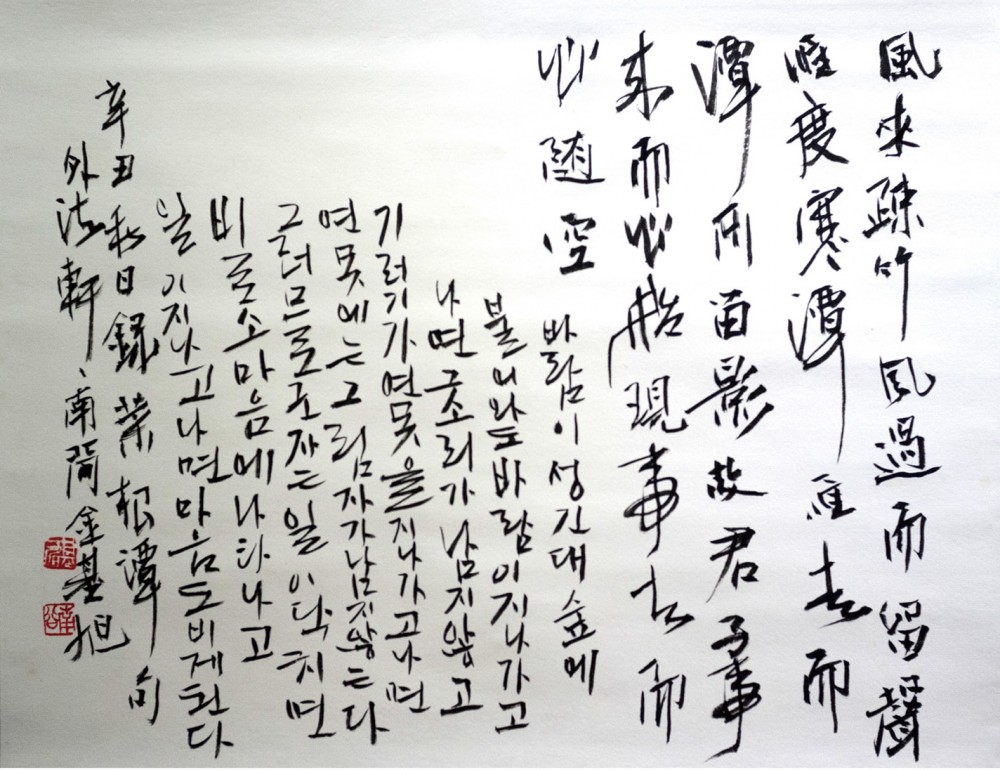 風來疎竹风過而留聲
雁度寒潭雁去而
潭不留影故君子事
來而心始現事去而
心随空
바람이 성긴 대숲에
불어와도 바람이 지나가고
나면 그 소리가 남지 않고
기러기가 연못을 지나가고 나면
연못에는 그림자가 남지 않는다
그러므로 군자는 일이 닥치면
비로소 마음에 나타나고
일이 지나고 나면 마음도 비게 된다
辛丑秋日録菜根譚句
外法軒、南 金基旭